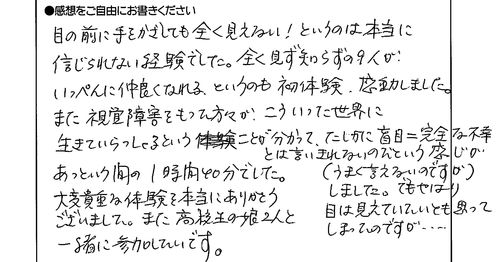 ●感想をご自由にお書きください
目の前に手をかざしても全く見えない！というのは本当に
信じられない経験でした。全く見ず知らずの9人が
いっぺんに仲良くなれる、というのも初体験、感動しました。
また視覚障害をもって方々が、こういった世界に
生きていらっしゃるという体験ことが分かって、たしかに盲目＝完全な不幸
とは言いきれないのだという感じが
あっという間の1時間40分でした。
（うまく言えないのですが）
大変貴重な体験を本当にありがとう
しました。でもやはり
ございました。また高校生の娘2人と
目は見えていたいとも思って
一緒に参加したいです。
しまったのですが……